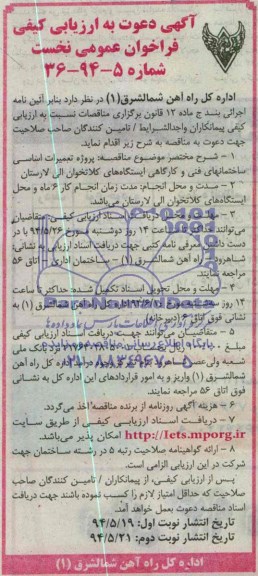 آگهی دعوت به ارزیابی کیفی
فراخوان عمومی نخست
شماره ۵-۹۴-۳۶
اداره کل راه آهن شمالشرق(۱) در نظر دارد بنابر آئین نامه
اجرائی بند ج ماده ۱۲ قانون برگزاری مناقصات نسبت به ارزیابی
کیفی پیمانکاران واجدالشرایط / تامین کنندگان صاحب صلاحیت
جهت دعوت به مناقصه به شرح زیر اقدام نماید.
۱- شرح مختصر موضوع مناقصه: پروژه تعمیرات اساسی
ساختمانهای فنی و کارگاهی ایستگاه‌های کلاتخوان الی لارستان
۲- مدت و محل انجام: مدت زمان انجام کار ۶ ماه و محل
ایستگاه‌های کلاتخوان الی لارستان می‌باشد.
۳- دریافت اسناد ارزیابی کیفی: متقاضیان
می‌توانند ساعت ۱۴ روز دوشنبه ۹۴/۵/۲۶ با در
دست داشتن معرفی نامه کتبی جهت دریافت اسناد ارزیابی به نشانی:
شاهرود- راه آهن شمالشرق (۱) - ساختمان اداری - اتاق ۵۶
مراجعه نمایند.
۴- مهلت و محل تحویل اسناد تکمیل شده: حداکثر تا ساعت
۱۴ روز اداره کل راه آهن شمالشرق (۱) به
نشانی فوق اتاق (دبیرخانه)
۵- متقاضیان می‌توانند جهت دریافت اسناد ارزیابی کیفی
مبلغ ریال نزد بانک ملی
شعبه راه آهن اداره کل راه آهن
شمالشرق (۱) واریز و به امور قراردادهای این اداره کل به نشانی
فوق اتاق ۵۶ مراجعه نمایند.
۶- هزینه آگهی روزنامه از برنده مناقصه اخذ می‌گردد.
۷- دریافت اسناد ارزیابی کیفی از طریق سایت
http://Iets.mporg.ir امکان پذیر می‌باشد.
۸- ارائه گواهینامه صلاحیت رتبه ۵ در رشته ساختمان جهت
شرکت در این ارزیابی الزامی است.
پس از ارزیابی کیفی، از پیمانکاران / تامین کنندگان صاحب
صلاحیت که حداقل امتیاز لازم را کسب نموده باشند جهت دریافت
اسناد مناقصه دعوت بعمل خواهد آمد.
تاریخ انتشار نوبت اول: ۹۴/۵/۱۹
تاریخ انتشار نوبت دوم: ۹۴/۵/۲۱
اداره کل راه آهن شمالشرق (۱)